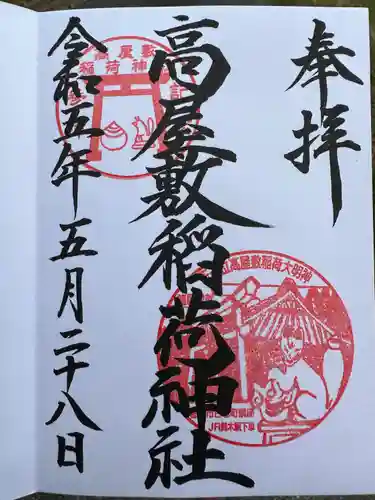 奉拝
高屋敷稲荷神社
令和五年五月二十八日
高屋敷
稲荷神
記
高屋敷稲荷大明神